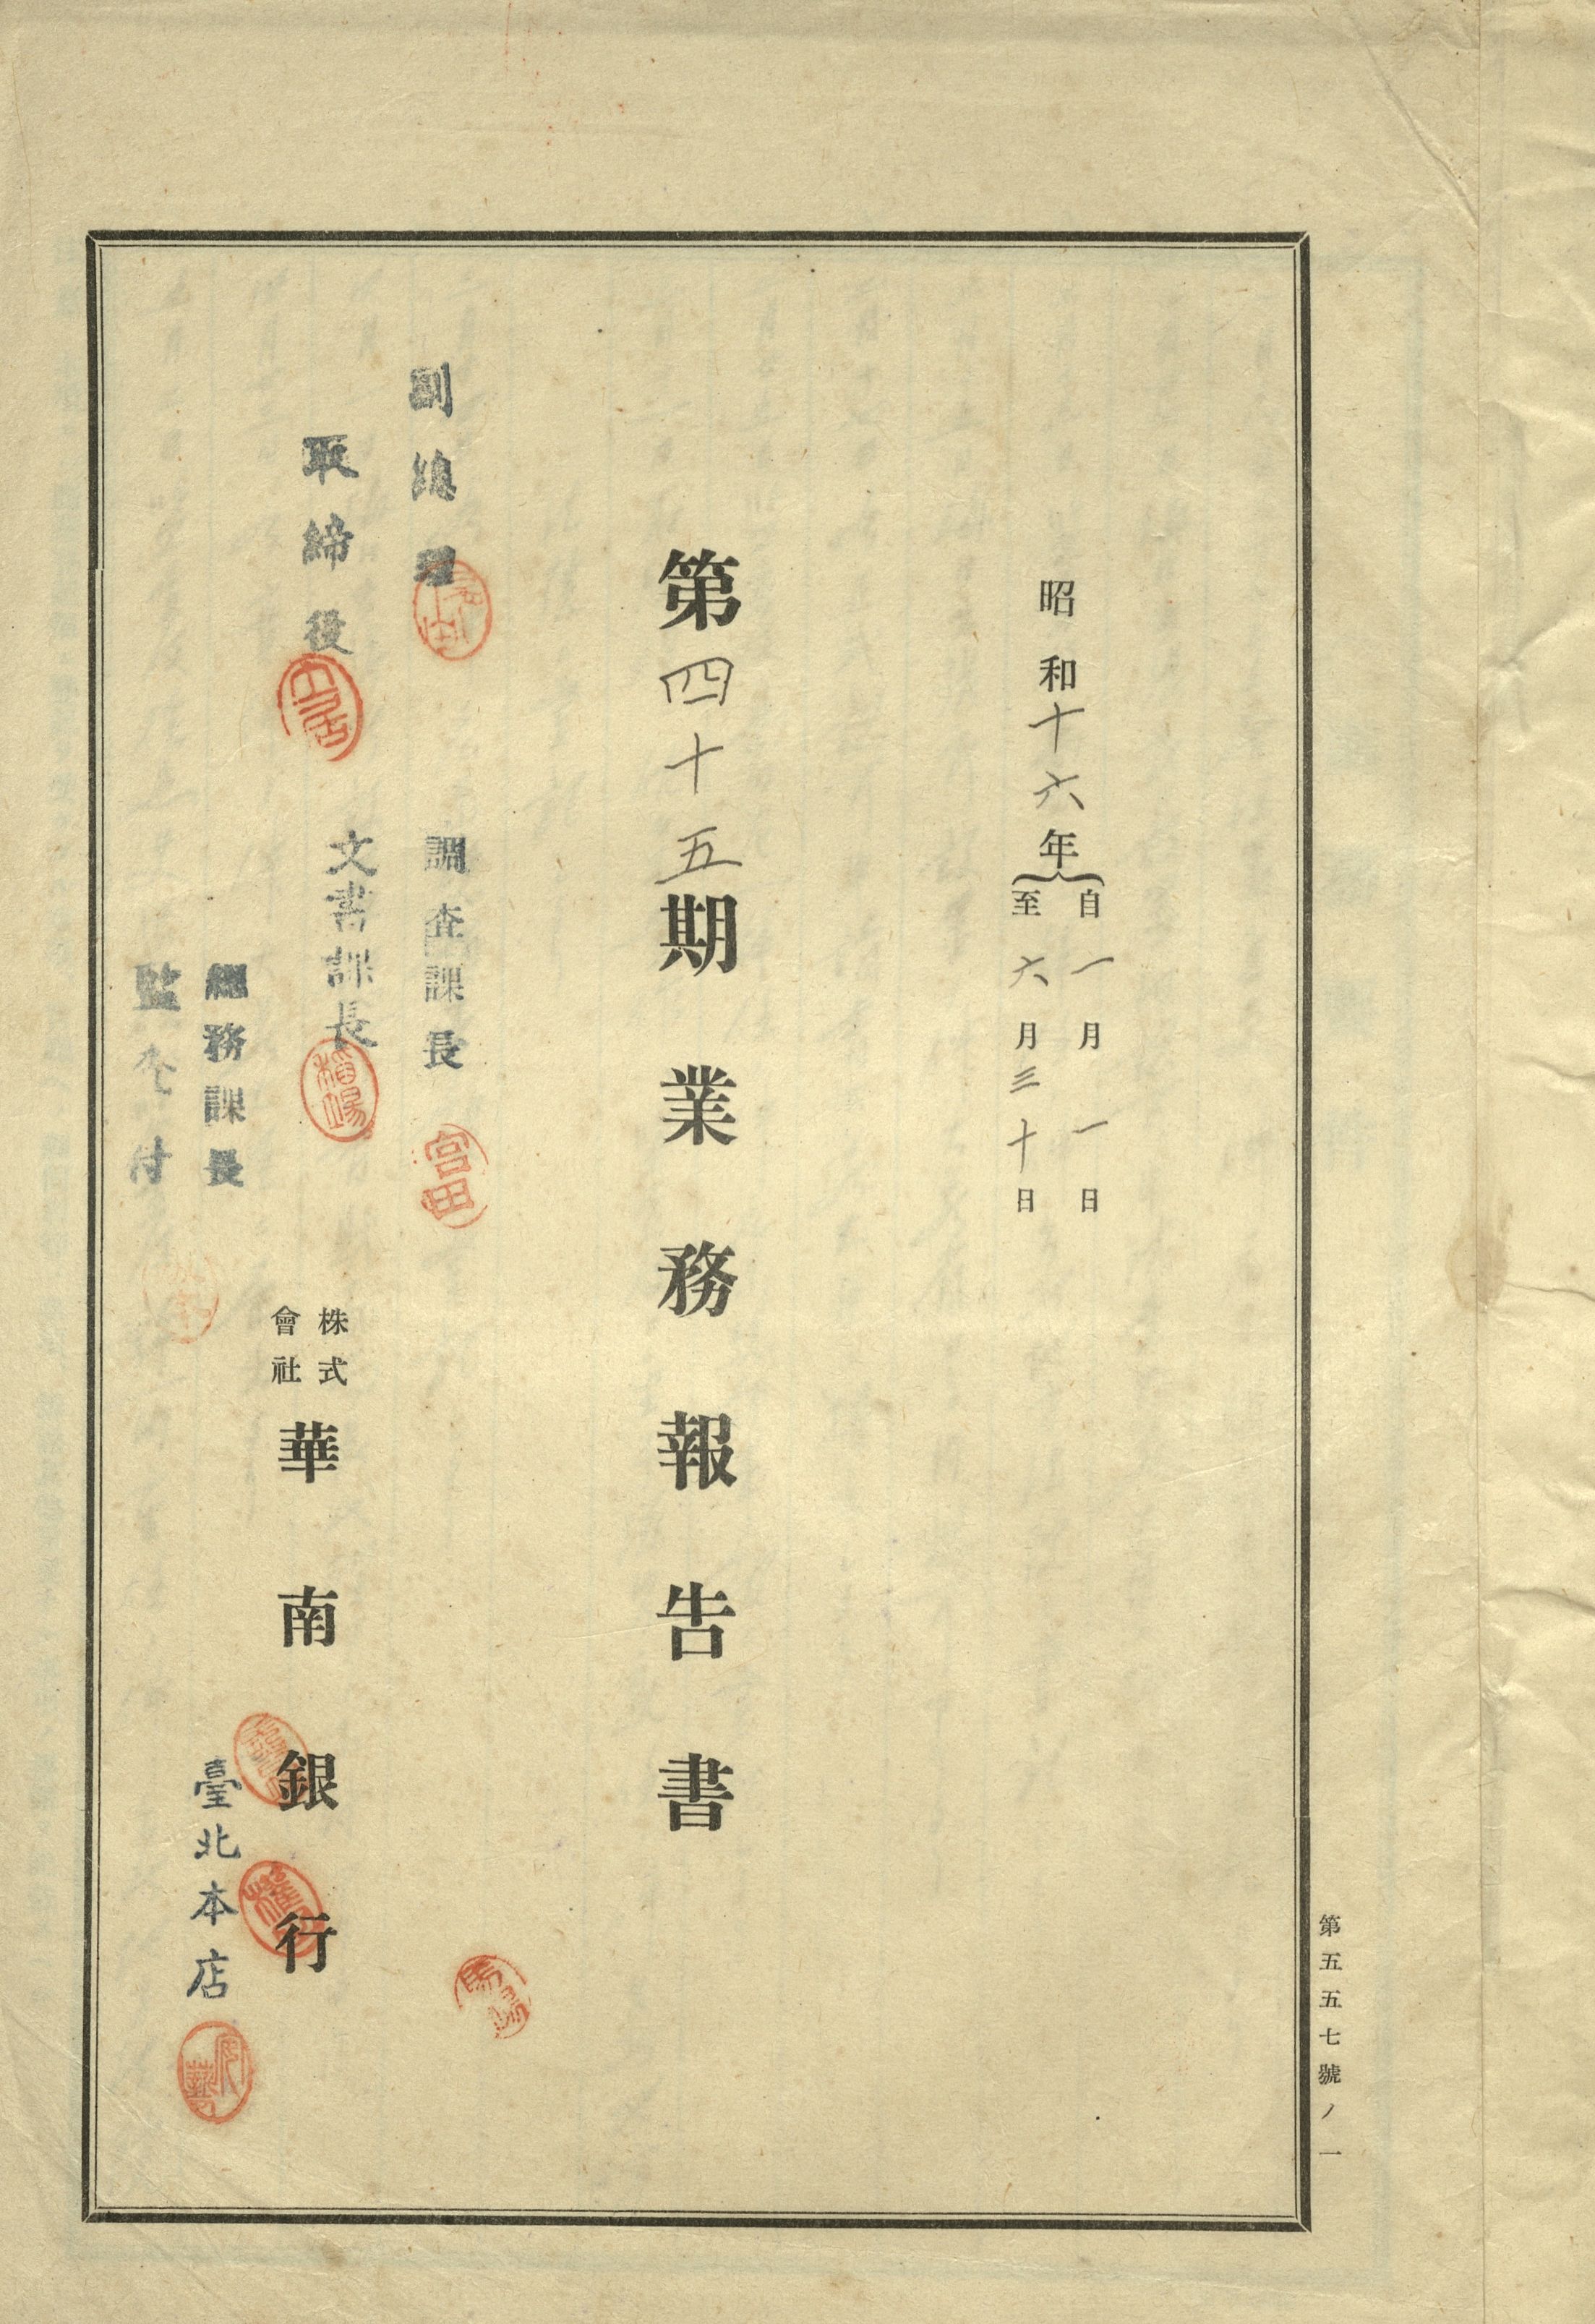 昭和十六年
自一月一日
至六月三十日
第四十五期業務報告書
副總理
取締役
調查課長
宮田
文書課長
總務課長
監查付
株式會社
華南銀行
臺北本店
第五五七號ノ一